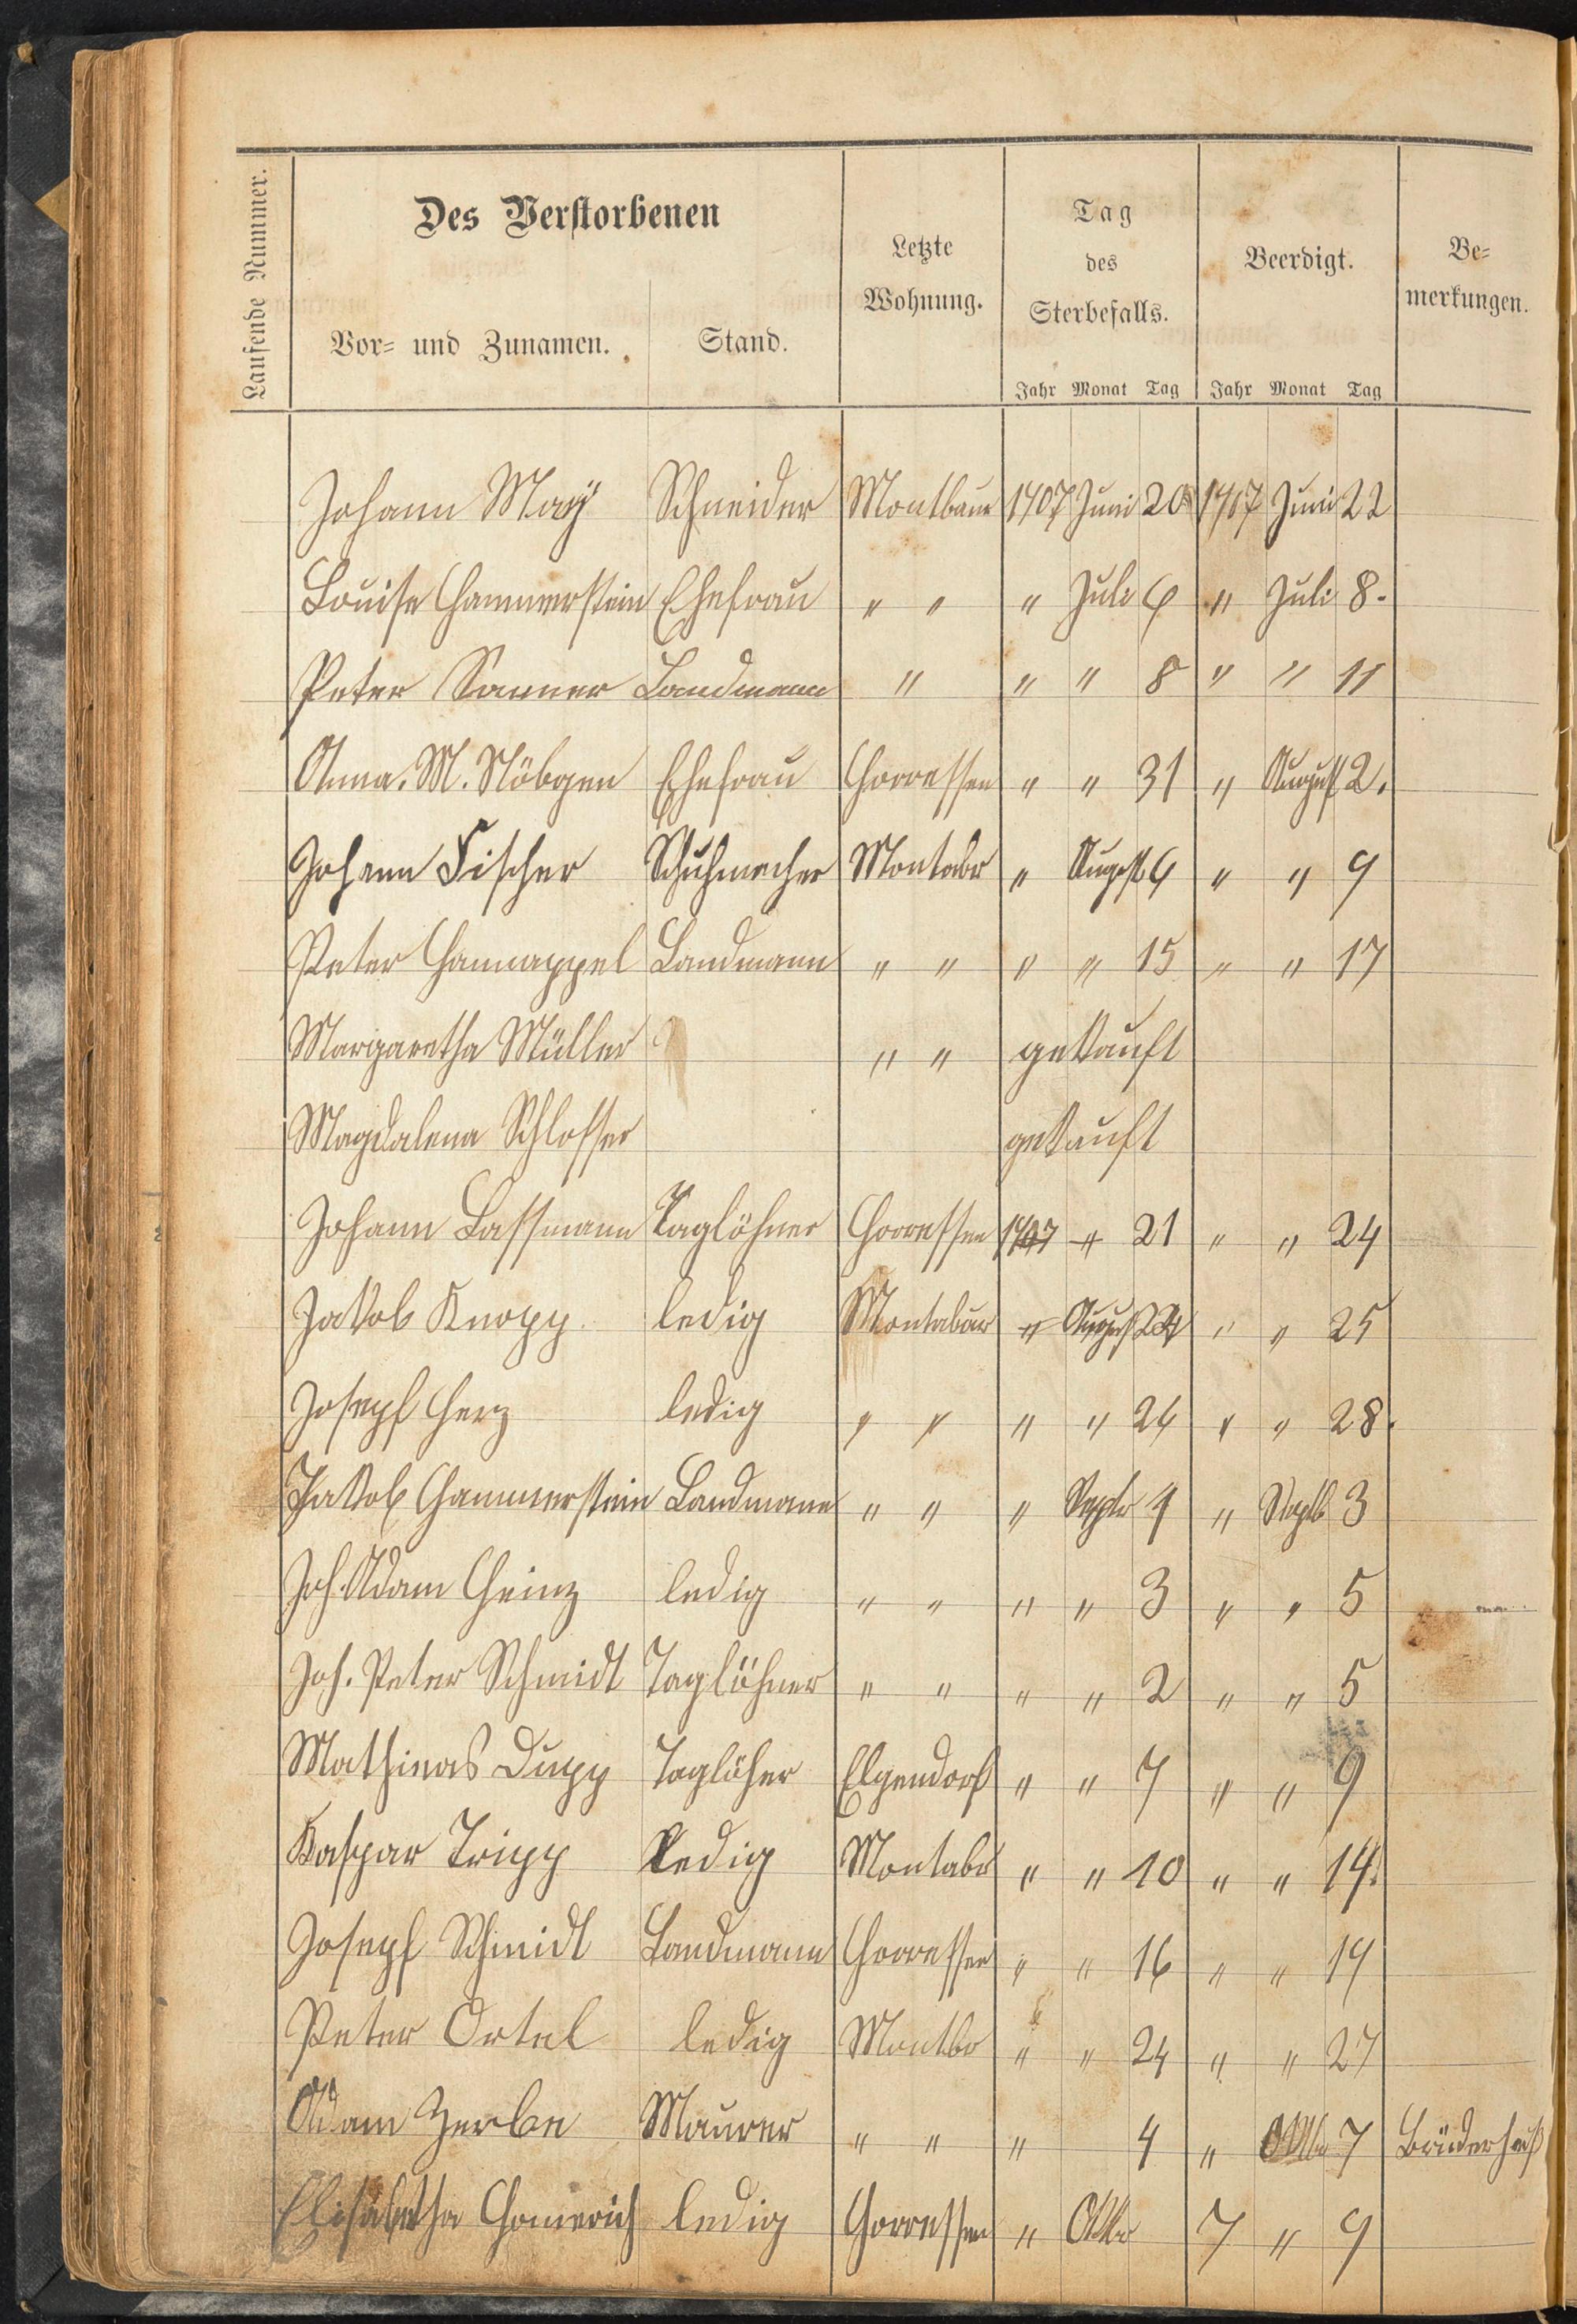 Laufende Nummer.
Des Verstorbenen
Vor- und Zunamen.
Stand.
Letzte
Wohnung.
Tag
des
Sterbefalls.
Beerdigt.
Be-
merkungen.
Jahr Monat Tag Jahr Monat Tag
Johann Maÿ Schneider Montbaur 1907 Juni 20 1907 Juni 22
Louise Hammerstein Ehefrau " " " Juli 6 " Juli 8.
Peter Sanner Landmann " " " 8 " " 11
Anna. M. Nöbgen Ehefrau Horressen " " 31 " August 2.
Johann Fischer Schuhmacher Montabr " August 6 " " 9
Peter Hannappel Landmann " " " " 15 " " 17
Margaretha Müller " " gekauft
Magdalena Schlosser gekauft
Johann Bassmann Taglöhner Horressen 1907 " 21 " " 24
Jakob Knopp ledig Montabaur " August " " 25
Joseph Herz ledig " " " " 26 " " 28.
Jakob Hammerstein Landmann " " " Septr 1 " Septb 3
Joh. Adam Heinz ledig " " " " 3 " " 5
Joh. Peter Schmidt Taglöhner " " " " 2 " " 5
Mathieas Dupp Taglöher Elgendorf " " 7 " " 9
Kaspar Tripp Ledig Montabr " " 10 " " 14.
Joseph Schmidt Landmann Horressen " " 16 " " 19
Peter Ortel ledig Montbr " " 24 " " 27
Adam Zerbe Maurer " " " 4 " Oktbr 7 Brüderhauß
Elisabetha ledig Horressen " Oktbr 7 " 9